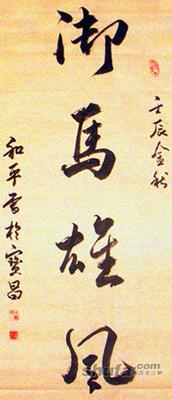 御馬雄風
壬辰金秋
和平書於寶昌